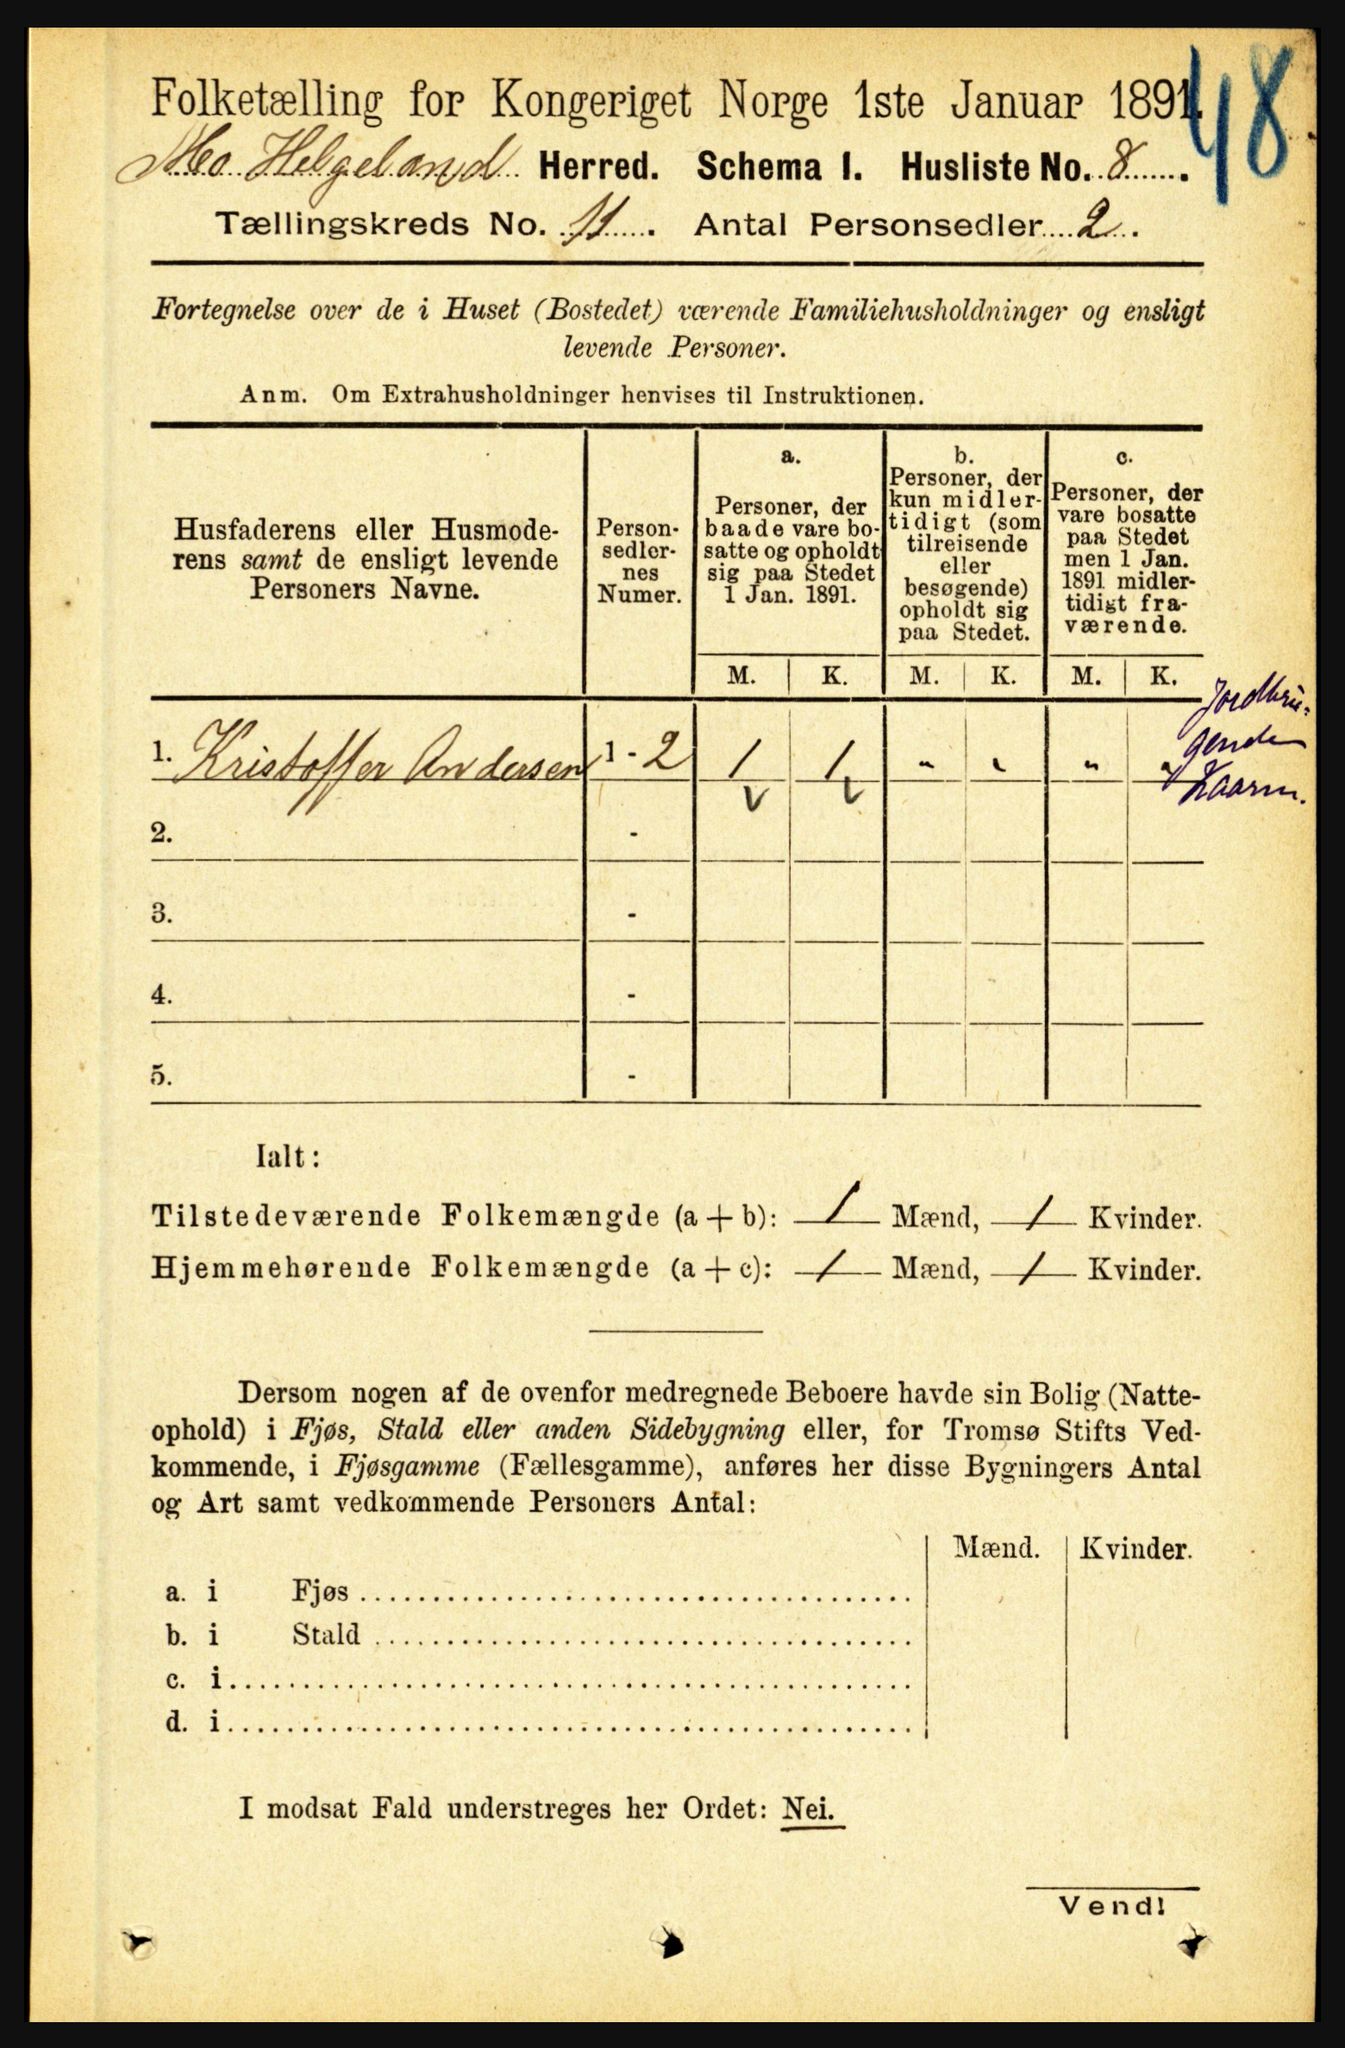 48
Folketælling for Kongeriget Norge 1ste Januar 1891.
Mo Helgeland Herred. Schema I. Husliste No. 8.
Tællingskreds No. 11. Antal Personsedler 2.
Fortegnelse over de i Huset (Bostedet) værende Familiehusholdninger og ensligt
levende Personer.
Anm. Om Extrahusholdninger henvises til Instruktionen.
Husfaderens eller Husmode-
rens samt de ensligt levende
Personers Navne.
Person-
sedler-
nes
Numer.
a.
Personer, der
baade vare bo-
satte og opholdt
sig paa Stedet
1 Jan. 1891.
b.
Personer, der
kun midler-
tidigt (som
tilreisende
eller
besøgende)
opholdt sig
paa Stedet.
c.
Personer, der
vare bosatte
paa Stedet
men 1 Jan.
1891 midler-
tidigt fra-
værende.
M. K. M. K. M. K.
Jordbru-
gende
1. Kristoffer Andersen 1 - 2 1 1 " " " "
2. -
3. -
4. -
5. -
Ialt:
Tilstedeværende Folkemængde (a + b): 1 Mænd, 1 Kvinder.
Hjemmehørende Folkemængde (a + c): 1 Mænd, 1 Kvinder.
Dersom nogen af de ovenfor medregnede Beboere havde sin Bolig (Natte-
ophold) i Fjøs, Stald eller anden Sidebygning eller, for Tromsø Stifts Ved-
kommende, i Fjøsgamme (Fællesgamme), anføres her disse Bygningers Antal
og Art samt vedkommende Personers Antal:
Mænd. Kvinder.
a. i Fjøs
b. i Stald
c. i
d. i
I modsat Fald understreges her Ordet: Nei.
Vend!